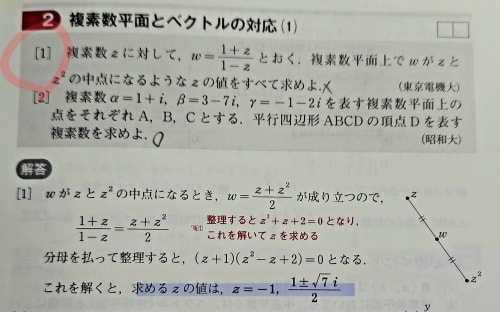 2 複素数平面とベクトルの対応(1)
[1] 複素数 z に対して, w=\frac{1+z}{1-z} とおく. 複素数平面上で w が z と
z² の中点になるような z の値をすべて求めよ. × (東京電機大)
[2] 複素数 α=1+i, β=3-7i, γ=-1-2i を表す複素数平面上の
点をそれぞれ A, B, C とする. 平行四辺形 ABCD の頂点 D を表す
複素数を求めよ. (昭和大)
解答
[1] w が z と z² の中点になるとき, w=\frac{z+z²}{2} が成り立つので,
\frac{1+z}{1-z}=\frac{z+z²}{2}
整理すると z³+z+2=0 となり,
これを解いて z を求める
分母を払って整理すると, (z+1)(z²-z+2)=0 となる.
これを解くと, 求める z の値は, z=-1, \frac{1±√7 i}{2}
z
w
z²
y